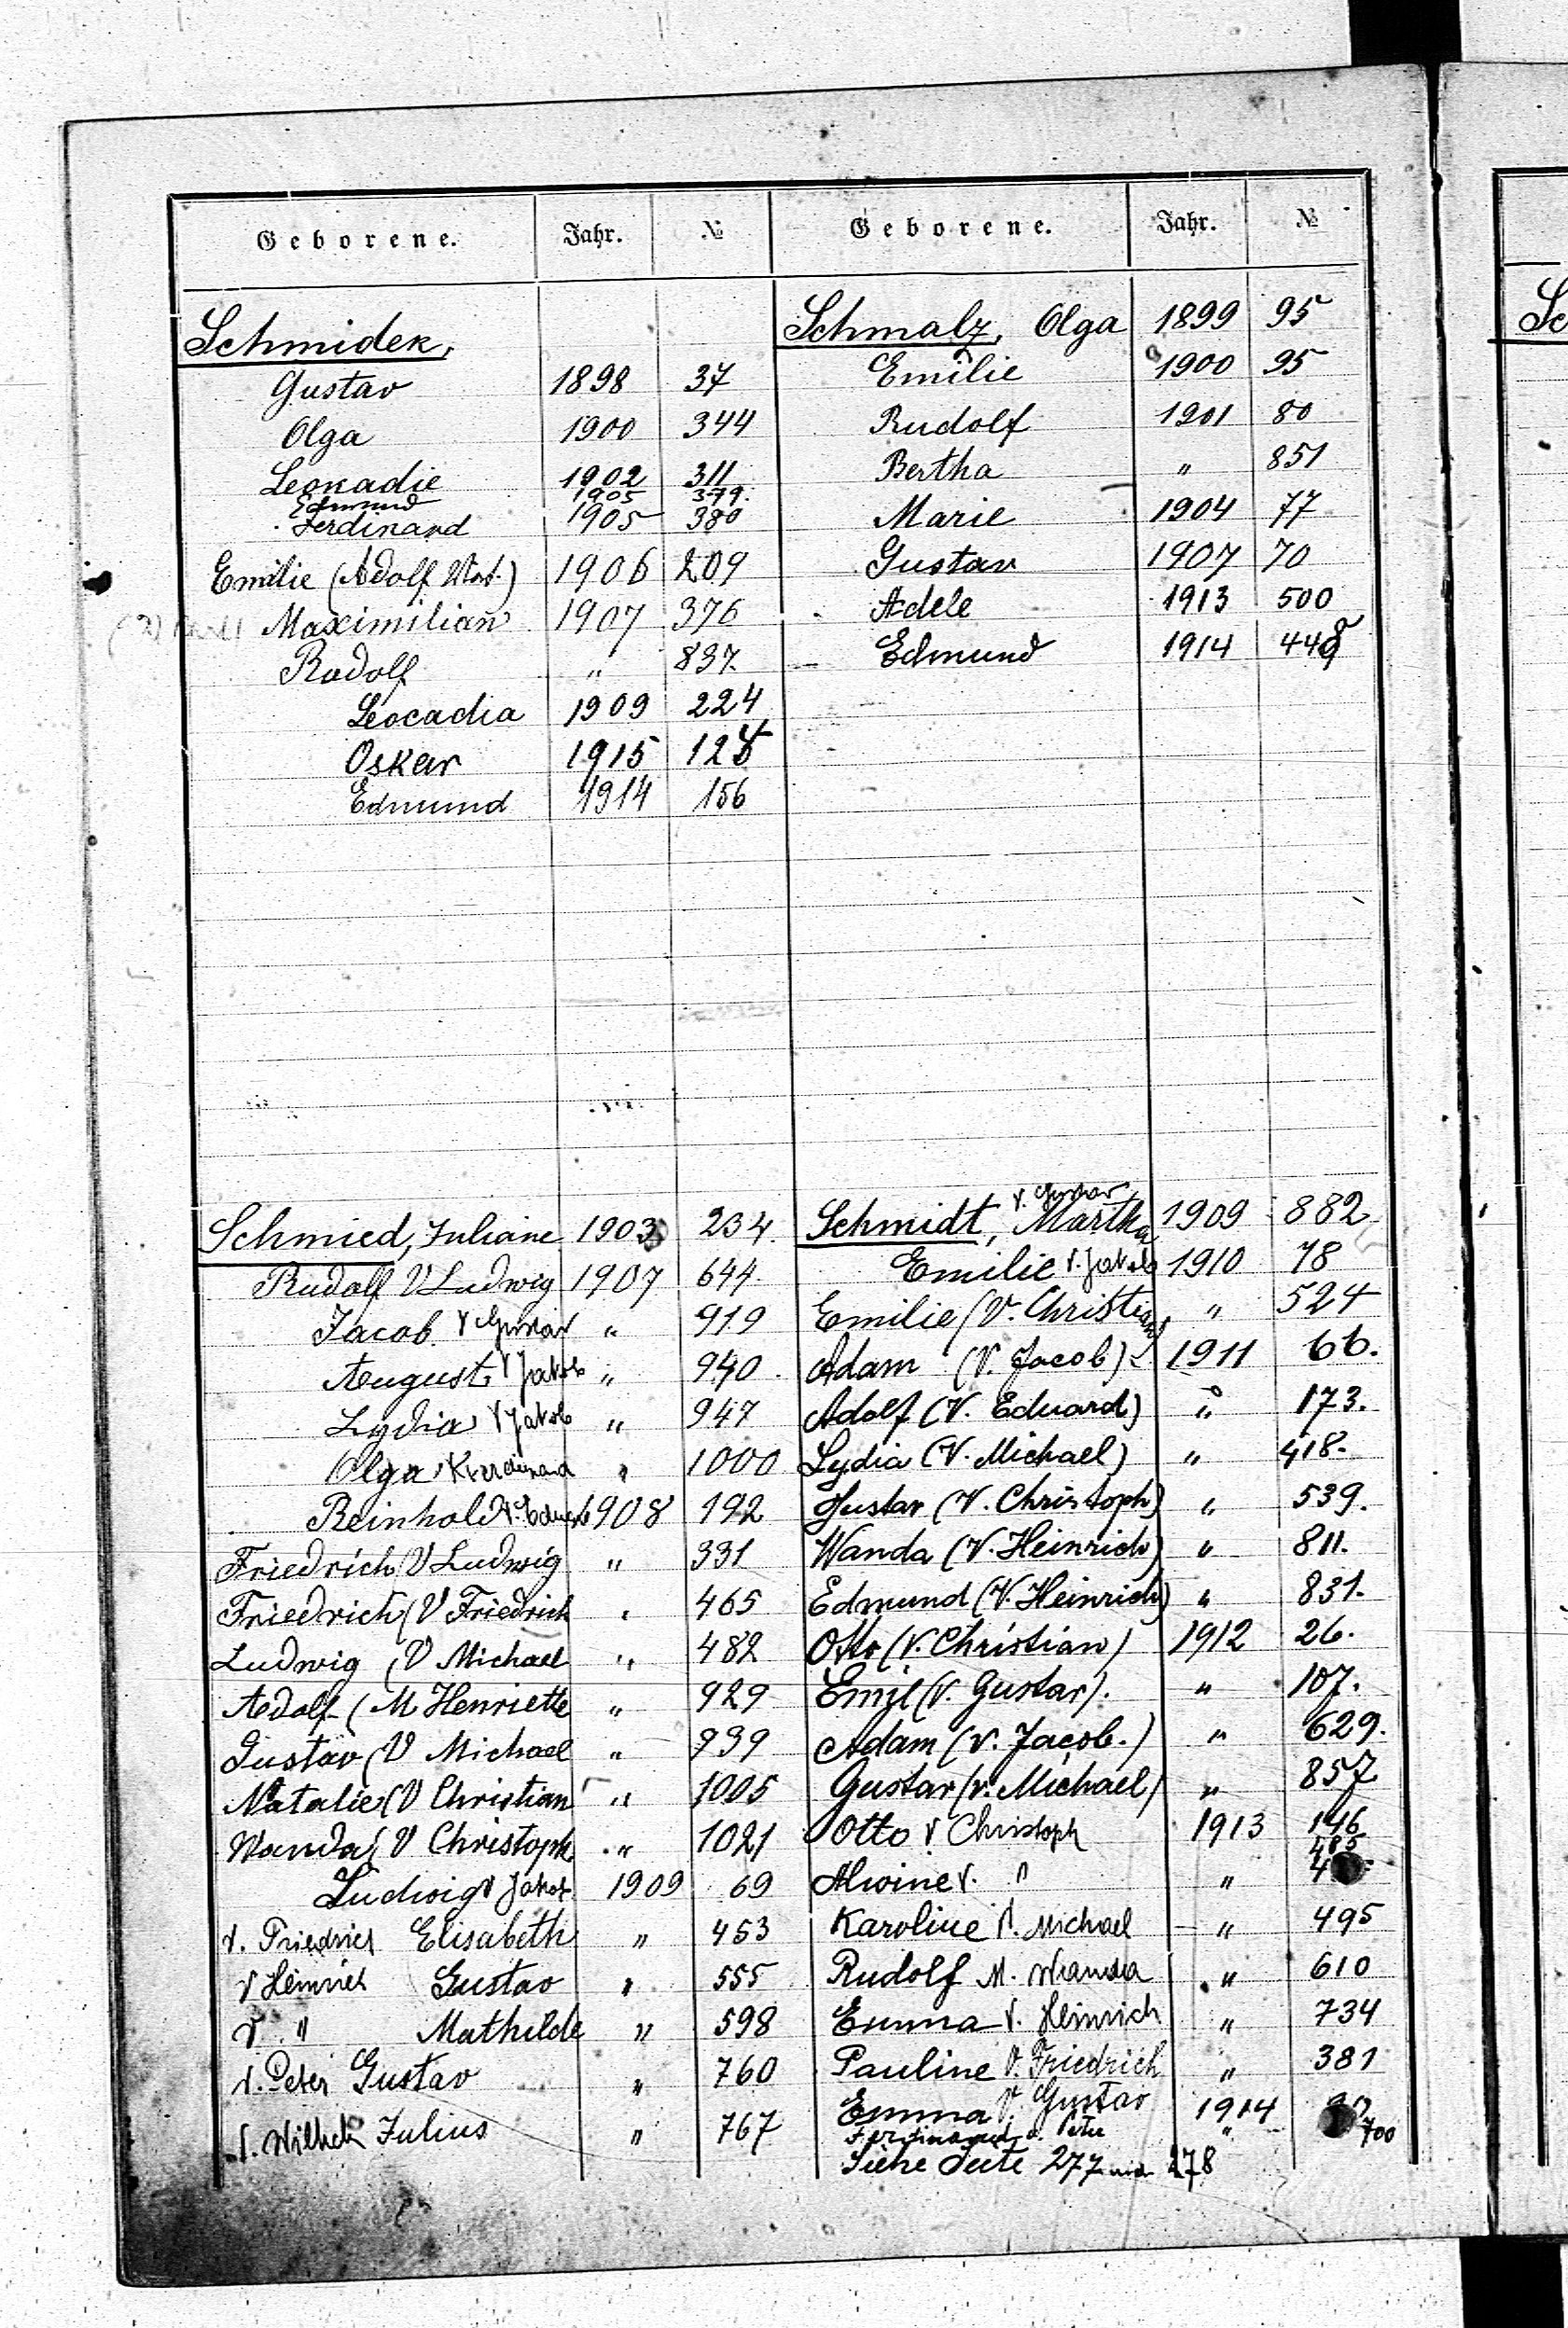 Geborene. Jahr. №
Schmidek,
Gustav 1898 37
Olga 1900 344
Leokadie 1902 311
Edmund 1905 379.
Ferdinand 1905 380
Emilie (Adolf 1906 209
Maximilian 1907 376
Rudolf " 837.
Leocadia 1909 224
Oskar 1915 124
Edmund 1914 156
Geborene. Jahr. №
Schmalz, Olga 1899 95
Emilie 1900 95
Rudolf 1901 80
Bertha " 851
Marie 1904 77
Gustav 1907 70
Adele 1913 500
Edmund 1914 448
Schmied, Juliane 1903 234.
Rudolf V Ludwig 1907 644.
Jacob V Gustav " 919
August V Jakob " 940.
Lydia V Jakob " 947
Olga V Ferdinand " 1000
Reinhold V. Eduard 1908 192
Friedrich V Ludwig " 331
Friedrich (V Friedrich " 465
Ludwig (V Michael " 482
Adolf (M Henriette " 929
Gustav (V Michael " 939
Natalie (V Christian " 1005
Wanda (V Christoph " 1021
Ludwig V Jakob 1909 69
V. Friedrich Elisabeth " 453
V Heinrich Gustav " 555
V " Mathilde " 598
V. Peter Gustav " 760
V. Wilhelm Julius " 767
V. Gustav
Schmidt, Martha 1909 882
Emilie V. Jakob 1910 78
Emilie (V. Christian) " 524
Adam (V. Jacob) 1911 66.
Adolf (V. Eduard) " 173.
Lydia (V. Michael) " 418.
Gustav (V. Christoph) " 539.
Wanda (V. Heinrich) " 811.
Edmund (V. Heinrich) " 831.
Otto (V. Christian) 1912 26.
Emil (V. Gustav). " 107.
Adam (V. Jacob.) " 629.
Gustav (V. Michael) " 857
Otto V Christoph 1913 146
Alwine V. " " 485
Karoline V. Michael " 495
Rudolf M. Wanda " 610
Emma V. Heinrich " 734
Pauline V. Friedrich " 381
Emma V. Gustav 1914
Ferdinand v. Peter " 700
Siehe Seite 277 und 278